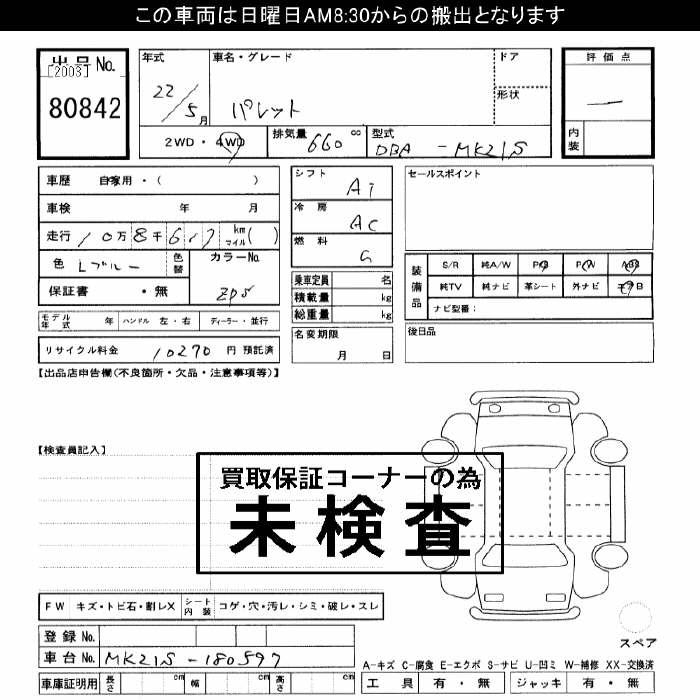 この車両は日曜日AM8:30からの搬出となります
出品No.
[2003]
80842
年式
22/5月
車名・グレード
パレット
ドア
形状
2WD・4WD
排気量
660 cc
型式
DBA-MK21S
評価点
内装
車歴 自家用・( )
車検 年 月
走行 10万8千617 km マイル( )
色 Lブルー 色替
カラーNo. ZP5
保証書 ・無
モデル年式 年 ハンドル 左・右 ディーラー・並行
リサイクル料金 10270 円 預託済
シフト
AT
冷房
AC
燃料
G
乗車定員 名
積載量 kg
総重量 kg
名変期限
月 日
セールスポイント
装備品
S/R 純A/W P/S P/W ABS
純TV 純ナビ 革シート 外ナビ エアB
ナビ型番:
後日品
【出品店申告欄(不良箇所・欠品・注意事項等)】
【検査員記入】
買取保証コーナーの為
未検査
FW キズ・トビ石・割レX シート内装 コゲ・穴・汚レ・シミ・破レ・スレ
登録No.
車台No. MK21S-180597
車庫証明用 長さ cm 幅 cm 高さ cm
スペア
A-キズ C-腐食 E-エクボ S-サビ U-凹ミ W-補修 XX-交換済
工具 有・無 ジャッキ 有・無